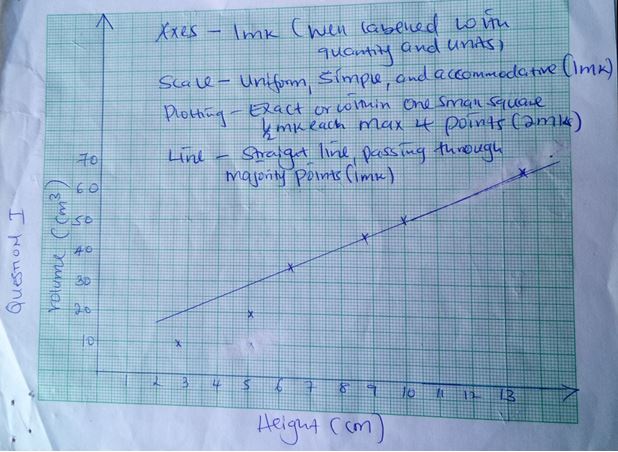 Axes - 1mk (well labelled with
quantity and units)
Scale - Uniform, Simple, and accommodative (1mk)
Plotting - Exact or within one small square
½ mk each max 4 points (2mk)
Line - Straight line, passing through
majority points (1mk)
QUESTION I
Volume (cm³)
70
60
50
40
30
20
10
1 2 4 5 6 7 8 9 10 11 12 13
Height (cm)